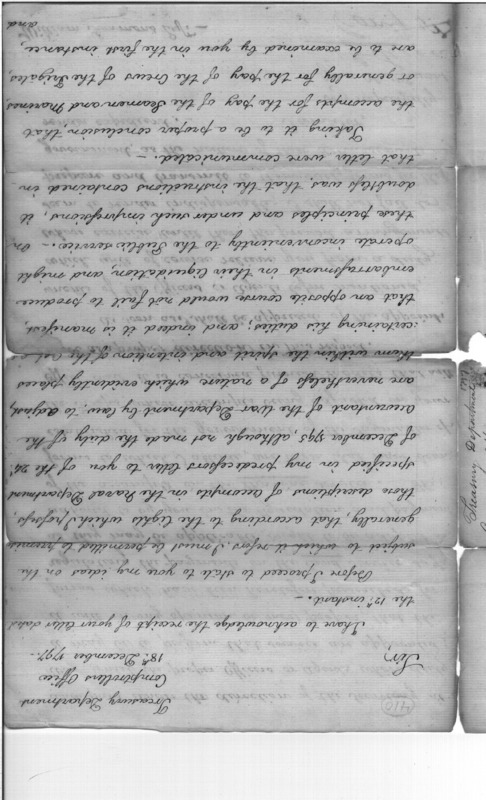 (410)
Treasury Department
Comptrollers Office
18th December 1797.-
Sir,
I have to acknowledge the receipt of your letter dated
the 12th instant.-
Before I proceed to state to you my ideas on the
subject to which it refers I must be permitted to premise
generally, that, according to the lights which I possess,
those descriptions of accompts in the Naval Department
specified in my predecessors letter to you of the 24th
of December 1795, although not made the duty of the
accountant of the War Department by law, to adjust,
are nevertheless of a nature which evidently places
them within the spirit and intention of the
:certaining his duties; and indeed it is manifest,
that an opposite course would not fail to produce
embarrassments in their liquidation, and might
operate inconveniently to the Public service.- On
these principles and under such impressions, it
doubtless was, that the instructions contained in
that letter were communicated.-
Taking it to be a proper conclusion, that
the accompts for the pay of the Seamen and Marines
or generally for the pay of the Crews of the Frigates,
are to be examined by you in the first instance,
and
William Simmons Esqr.-
Treasury Department